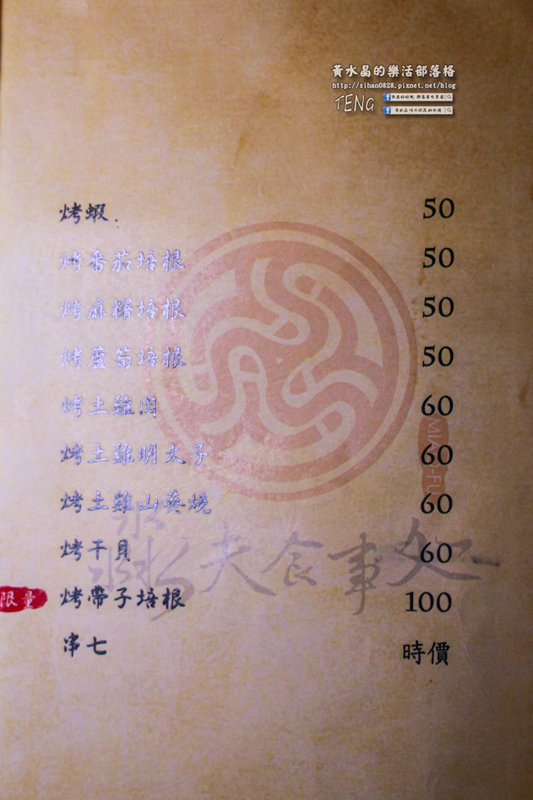 黃水晶的樂活部落格
http://sihan0828.pixnet.net/blog
TENG
烤蝦. 50
烤番茄培根 50
烤麻糬培根 50
烤蘆筍培根 50
烤土雞肉 60
烤土雞明太子 60
烤土雞山葵燒 60
烤干貝 60
限量 烤帶子培根 100
串七 時價
夫食事処